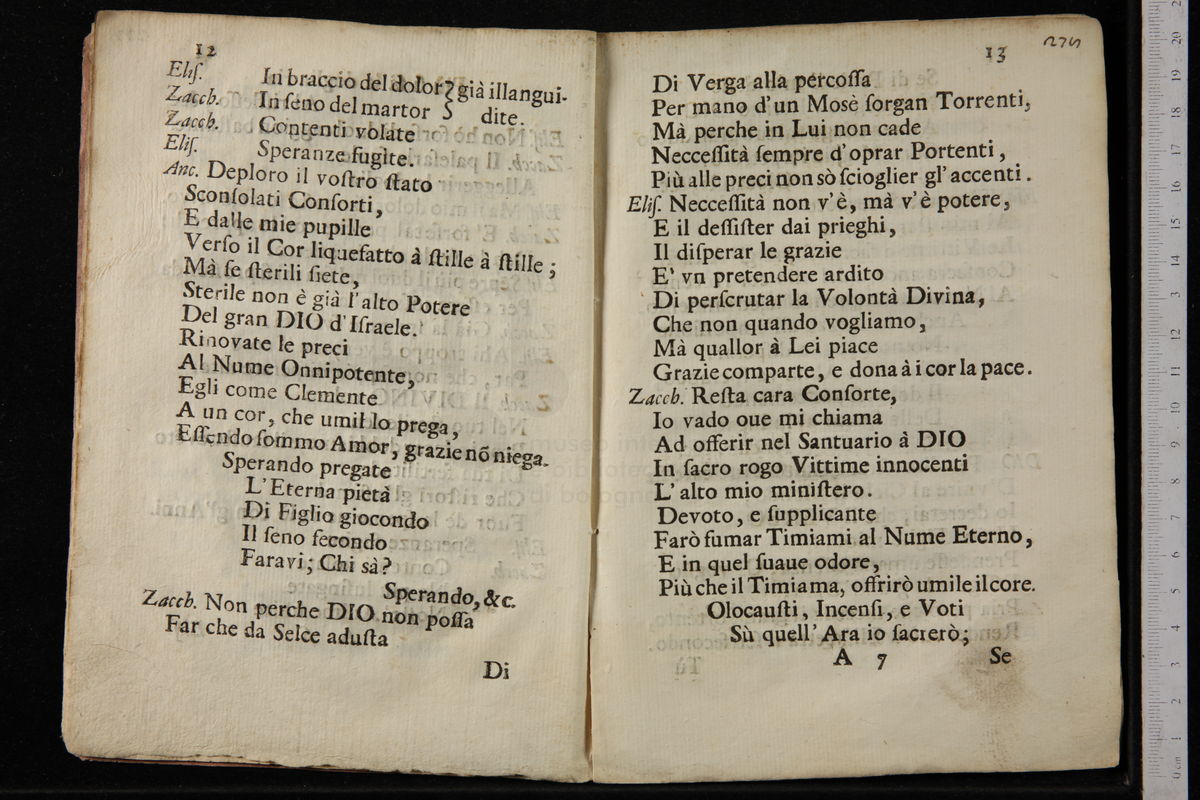 12
Eliſ. In braccio del dolor } già illangui-
Zacch. In ſeno del martor } dite.
Zacch. Contenti volate
Eliſ. Speranze fugite.
Anc. Deploro il voſtro ſtato
Sconſolati Conſorti,
E dalle mie pupille
Verſo il Cor liquefatto à ſtille à ſtille ;
Mà ſe ſterili ſiete,
Sterile non è già l'alto Potere
Del gran DIO d'Iſraele.
Rinovate le preci
Al Nume Onnipotente,
Egli come Clemente
A un cor, che umil lo prega,
Eſſendo ſommo Amor, grazie nõ niega.
Sperando pregate
L'Eterna pietà
Di Figlio giocondo
Il ſeno fecondo
Faravi ; Chi sà ?
Sperando, &c.
Zacch. Non perche DIO non poſſa
Far che da Selce aduſta
Di
13
Di Verga alla percoſſa
Per mano d'un Mosè ſorgan Torrenti,
Mà perche in Lui non cade
Necceſſità ſempre d'oprar Portenti ,
Più alle preci non sò ſcioglier gl'accenti .
Eliſ. Necceſſità non v'è, mà v'è potere,
E il deſſiſter dai prieghi,
Il diſperar le grazie
E' vn pretendere ardito
Di perſcrutar la Volontà Divina,
Che non quando vogliamo,
Mà quallor à Lei piace
Grazie comparte, e dona à i cor la pace.
Zacch. Reſta cara Conſorte,
Io vado oue mi chiama
Ad offerir nel Santuario à DIO
In ſacro rogo Vittime innocenti
L'alto mio miniſtero.
Devoto, e ſupplicante
Farò fumar Timiami al Nume Eterno,
E in quel ſuaue odore,
Più che il Timiama, offrirò umile il core.
Olocauſti, Incenſi, e Voti
Sù quell'Ara io ſacrerò;
A 7 Se